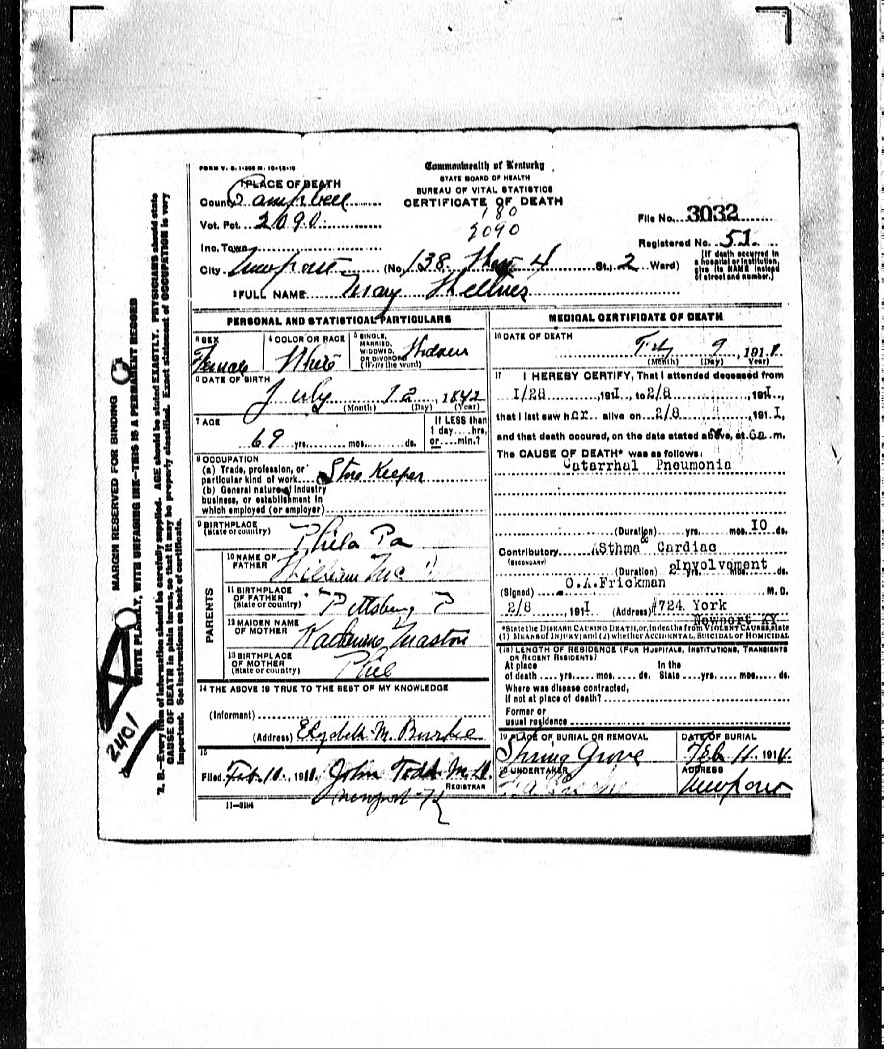 FORM V. S. 1-
Commonwealth of Kentucky
STATE BOARD OF HEALTH
BUREAU OF VITAL STATISTICS
CERTIFICATE OF DEATH
180
2090
1 PLACE OF DEATH
County Campbell
Vot. Pct. 2090
Inc. Town
City Newport (No. 138 4 St., 2 Ward)
File No. 3032
Registered No. 51
[If death occurred in a hospital or institution, give its NAME instead of street and number.]
2 FULL NAME Mary
PERSONAL AND STATISTICAL PARTICULARS
3 SEX Female
4 COLOR OR RACE White
5 SINGLE, MARRIED, WIDOWED, OR DIVORCED (Write the word) Widow
6 DATE OF BIRTH July 12 1842
(Month) (Day) (Year)
7 AGE 69 yrs. mos. ds.
If LESS than 1 day hrs. or min.?
8 OCCUPATION
(a) Trade, profession, or particular kind of work Store Keeper
(b) General nature of industry business, or establishment in which employed (or employer)
9 BIRTHPLACE (State or country) Phila Pa
PARENTS
10 NAME OF FATHER William
11 BIRTHPLACE OF FATHER (State or country) Pittsburg P
12 MAIDEN NAME OF MOTHER Katherine
13 BIRTHPLACE OF MOTHER (State or country) Phil
14 THE ABOVE IS TRUE TO THE BEST OF MY KNOWLEDGE
(Informant)
(Address) M. Burke
15
Filed Feb 10, 191 John Todd M.D.
REGISTRAR
Newport Ky
11-3184
MEDICAL CERTIFICATE OF DEATH
16 DATE OF DEATH
Feb 9, 191
(Month) (Day) (Year)
17 I HEREBY CERTIFY, That I attended deceased from
1/28 1911, to 2/8 1911,
that I last saw her alive on 2/8 1911,
and that death occured, on the date stated above, at 6a m.
The CAUSE OF DEATH* was as follows:
Catarrhal Pneumonia
(Duration) yrs. mos. 10 ds.
Contributory Asthma & Cardiac
(SECONDARY)
Involvement
(Duration) yrs. mos. ds.
(Signed) O.A.Frickman M.D.
2/8, 1911 (Address) #724 York
Newport KY
*State the DISEASE CAUSING DEATH, or, in deaths from VIOLENT CAUSES, state (1) MEANS OF INJURY; and (2) whether ACCIDENTAL, SUICIDAL or HOMICIDAL
(18) LENGTH OF RESIDENCE (FOR HOSPITALS, INSTITUTIONS, TRANSIENTS OR RECENT RESIDENTS)
At place of death yrs. mos. ds. In the State yrs. mos. ds.
Where was disease contracted, if not at place of death?
Former or usual residence
19 PLACE OF BURIAL OR REMOVAL Spring Grove
DATE OF BURIAL Feb 11, 191
20 UNDERTAKER
ADDRESS Newport
MARGIN RESERVED FOR BINDING
WRITE PLAINLY, WITH UNFADING INK—THIS IS A PERMANENT RECORD
N. B.—Every item of information should be carefully supplied. AGE should be stated EXACTLY. PHYSICIANS should state
CAUSE OF DEATH in plain terms, so that it may be properly classified. Exact statement of OCCUPATION is very
important. See instructions on back of certificate.
2401